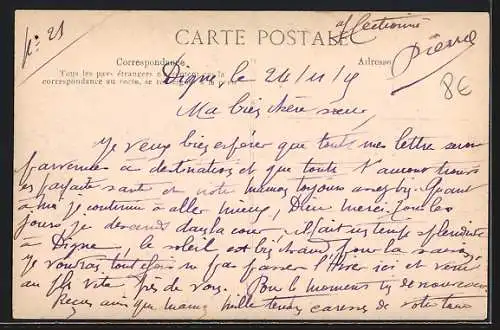 N° 21
CARTE POSTALE
affectionné
Pierre
Correspondance
Adresse
Tous les pays étrangers
correspondance au recto, se
8€
Digne le 24/11/
Ma bien chère sœur
Je veux bien espérer que toutes mes lettre
parvenues à destination et que toute
parfaite santé et notre maman toujours assez bien. Quant
à moi je continue à aller mieux, Dieu merci. Tous les
jours je descends dans la cour. Il fait un temps splendide
à Digne, le soleil est bien chaud pour la saison,
je voudrais pas passer l'Hiver ici et venir
au plus vite près de vous. Pour le moment rien de nouveau
Reçois ainsi que maman mille tendres caresses de votre